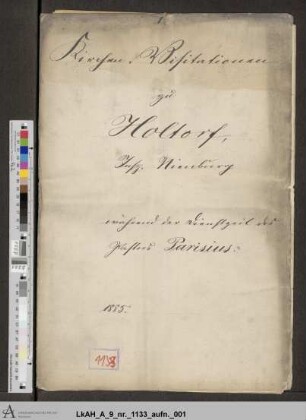 Kirchen-Visitationen
zu
Holtorf,
Insp. Nienburg
während der Dienstzeit des
Pastors Parisius.
1855.
1133
LkAH_A_9_nr._1133_aufn._001